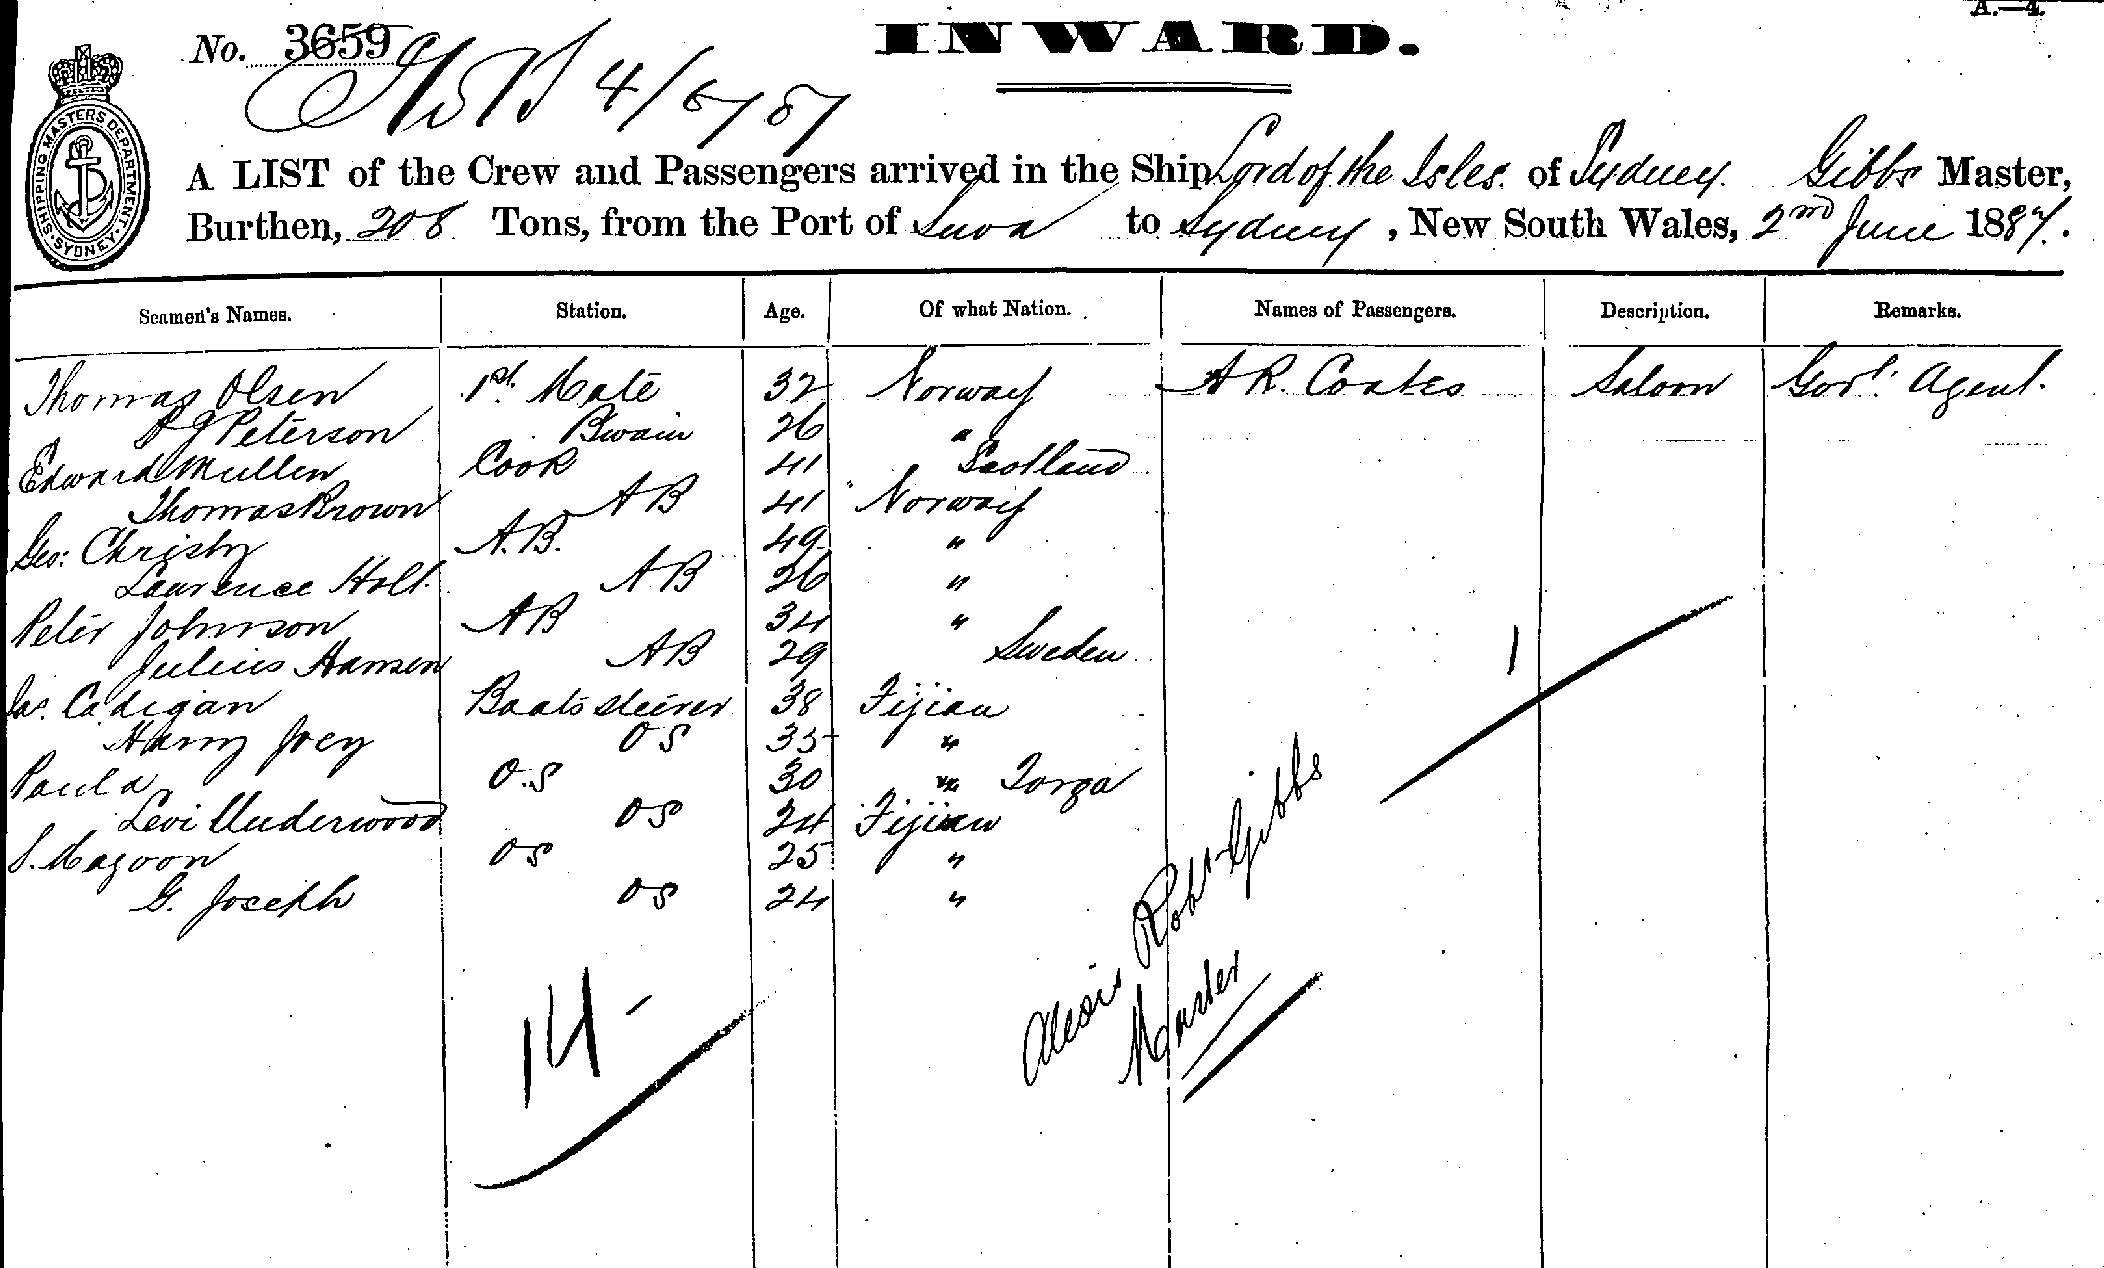 A.—4.
No. 3659
INWARD.
4/6/87
SHIPPING MASTERS DEPARTMENT SYDNEY
A LIST of the Crew and Passengers arrived in the Ship Lord of the Isles. of Sydney. Gibbs Master,
Burthen, 208 Tons, from the Port of Suva to Sydney, New South Wales, 2nd June 1887.
Seamen's Names. Station. Age. Of what Nation. Names of Passengers. Description. Remarks.
Thomas Olsen 1st. Mate 32 Norway A R. Coates Saloon Govt. Agent.
Peterson Bwain 26 "
Edward Mullen Cook 41 Scotland
Thomas Brown AB 41 Norway
Geo: Christy A.B. 49 "
Laurence Holt. AB 26 "
Peter Johnson AB 34 "
Julius Hansen AB 29 Sweden
Jas. Cadigan Boatsteerer 38 Fijian
Harry Joey OS 35 "
Paula O.S 30 " Tonga
Levi Underwood OS 24 Fijian
S. Magoon OS 25 "
G. Joseph OS 24 "
1
14 -
Robt. Gibbs
Master